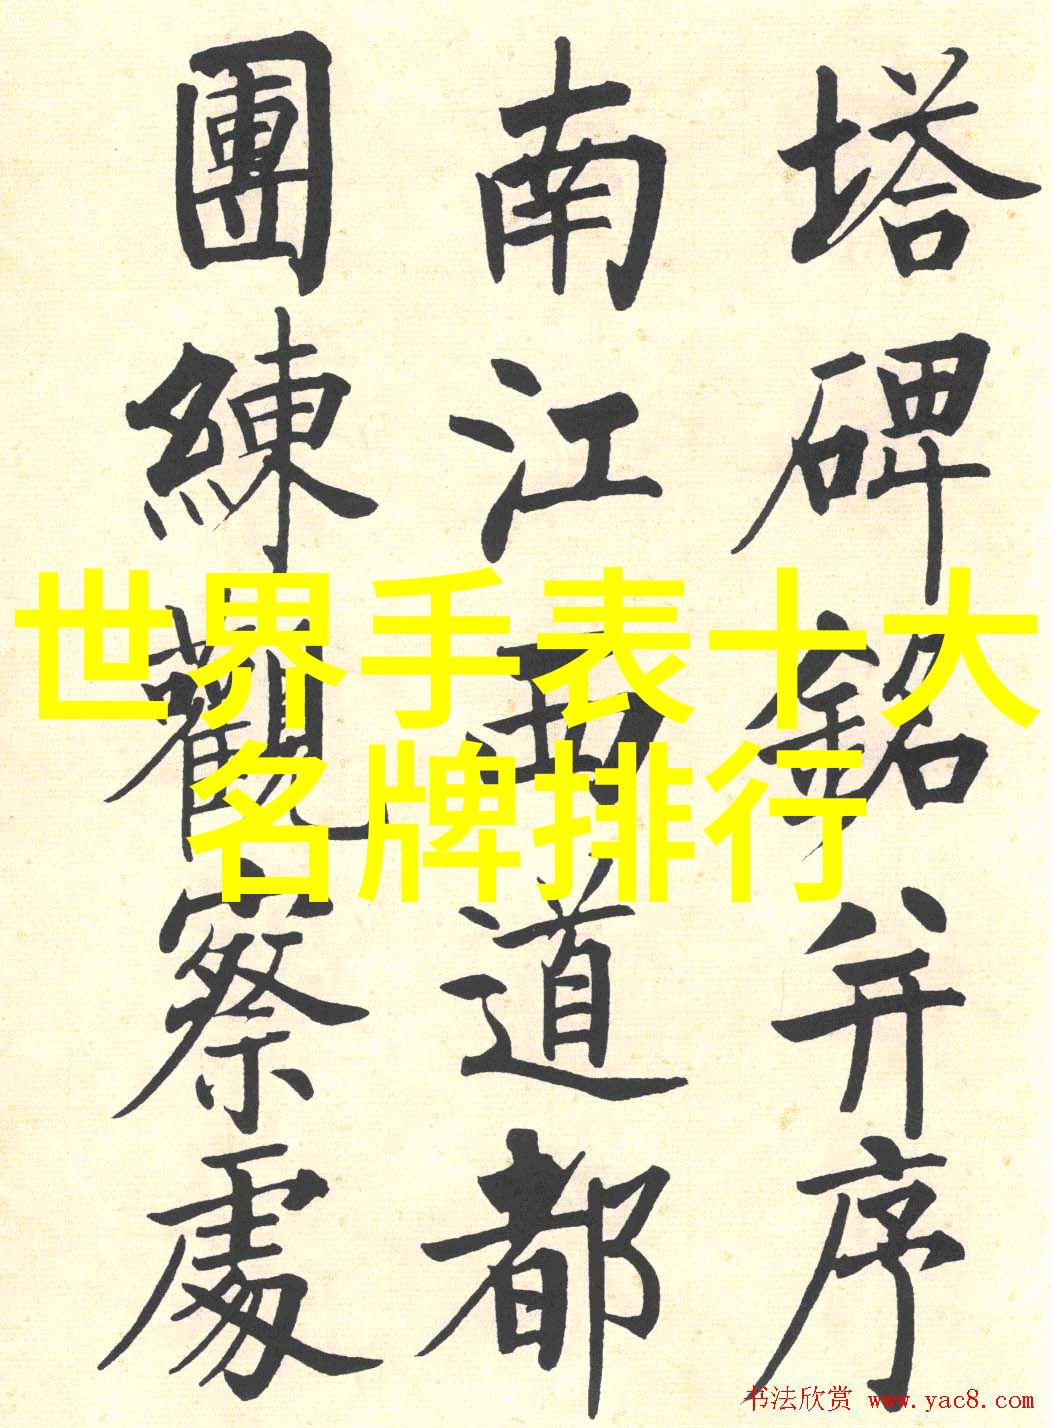 塔碑銘并序
南江西道都
團練觀察處
世界手表十大
名牌排行
书法欣赏 www.yac8.com